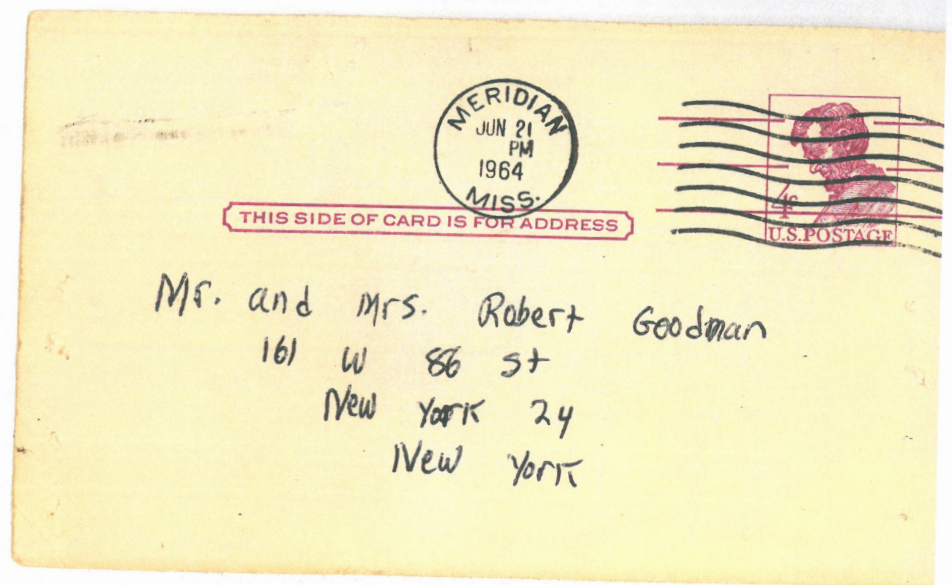 MERIDIAN
JUN 21
PM
1964
MISS.
4¢
U.S.POSTAGE
THIS SIDE OF CARD IS FOR ADDRESS
Mr. and Mrs. Robert Goodman
161 W 86 St
New York 24
New York